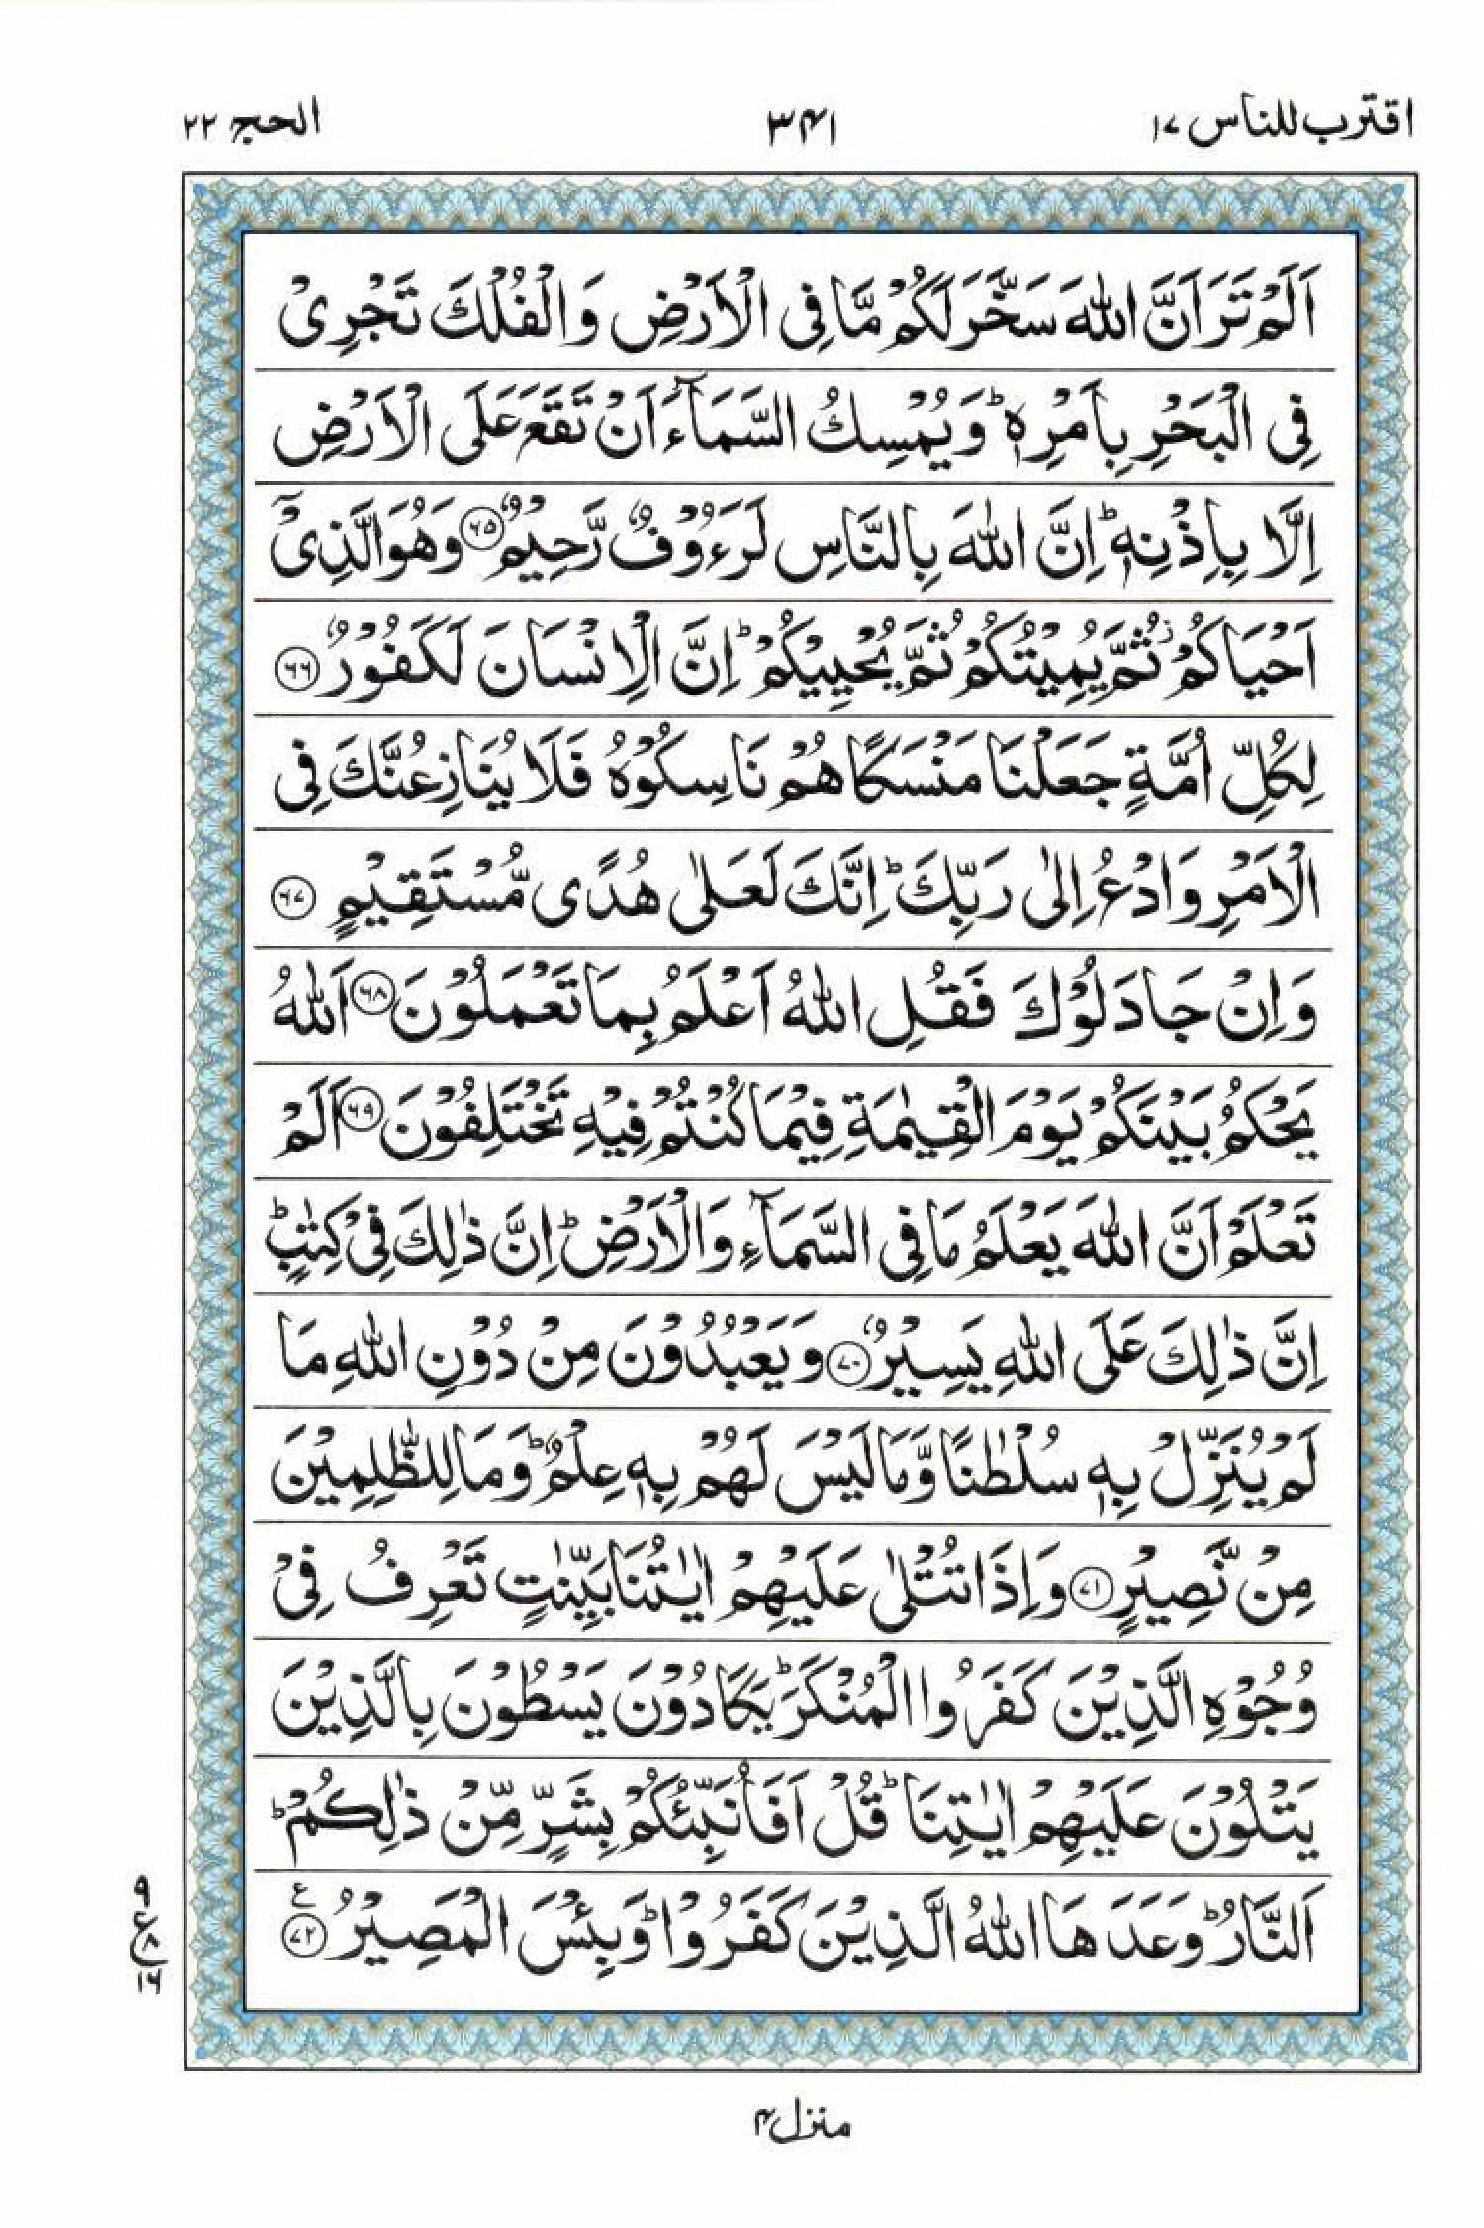 اقترب للناس ١٧
٣٤١
الحج ٢٢
اَلَمْ تَرَ اَنَّ اللّٰهَ سَخَّرَ لَكُمْ مَّا فِی الْاَرْضِ وَالْفُلْكَ تَجْرِیْ
فِی الْبَحْرِ بِاَمْرِهٖ ؕ وَیُمْسِكُ السَّمَآءَ اَنْ تَقَعَ عَلَی الْاَرْضِ
اِلَّا بِاِذْنِهٖ ؕ اِنَّ اللّٰهَ بِالنَّاسِ لَرَءُوْفٌ رَّحِیْمٌ ﴿۶۵﴾ وَهُوَ الَّذِیْۤ
اَحْیَاكُمْ ؗ ثُمَّ یُمِیْتُكُمْ ثُمَّ یُحْیِیْكُمْ ؕ اِنَّ الْاِنْسَانَ لَكَفُوْرٌ ﴿۶۶﴾
لِكُلِّ اُمَّةٍ جَعَلْنَا مَنْسَكًا هُمْ نَاسِكُوْهُ فَلَا یُنَازِعُنَّكَ فِی
الْاَمْرِ وَادْعُ اِلٰی رَبِّكَ ؕ اِنَّكَ لَعَلٰی هُدًی مُّسْتَقِیْمٍ ﴿۶۷﴾
وَاِنْ جَادَلُوْكَ فَقُلِ اللّٰهُ اَعْلَمُ بِمَا تَعْمَلُوْنَ ﴿۶۸﴾ اَللّٰهُ
یَحْكُمُ بَیْنَكُمْ یَوْمَ الْقِیٰمَةِ فِیْمَا كُنْتُمْ فِیْهِ تَخْتَلِفُوْنَ ﴿۶۹﴾ اَلَمْ
تَعْلَمْ اَنَّ اللّٰهَ یَعْلَمُ مَا فِی السَّمَآءِ وَالْاَرْضِ ؕ اِنَّ ذٰلِكَ فِیْ كِتٰبٍ ؕ
اِنَّ ذٰلِكَ عَلَی اللّٰهِ یَسِیْرٌ ﴿۷۰﴾ وَیَعْبُدُوْنَ مِنْ دُوْنِ اللّٰهِ مَا
لَمْ یُنَزِّلْ بِهٖ سُلْطٰنًا وَّمَا لَیْسَ لَهُمْ بِهٖ عِلْمٌ ؕ وَمَا لِلظّٰلِمِیْنَ
مِنْ نَّصِیْرٍ ﴿۷۱﴾ وَاِذَا تُتْلٰی عَلَیْهِمْ اٰیٰتُنَا بَیِّنٰتٍ تَعْرِفُ فِیْ
وُجُوْهِ الَّذِیْنَ كَفَرُوا الْمُنْكَرَ ؕ یَكَادُوْنَ یَسْطُوْنَ بِالَّذِیْنَ
یَتْلُوْنَ عَلَیْهِمْ اٰیٰتِنَا ؕ قُلْ اَفَاُنَبِّئُكُمْ بِشَرٍّ مِّنْ ذٰلِكُمْ ؕ
اَلنَّارُ ؕ وَعَدَهَا اللّٰهُ الَّذِیْنَ كَفَرُوْا ؕ وَبِئْسَ الْمَصِیْرُ ﴿۷۲﴾ ع
٩
ع ٨
١٦
منزل ٤